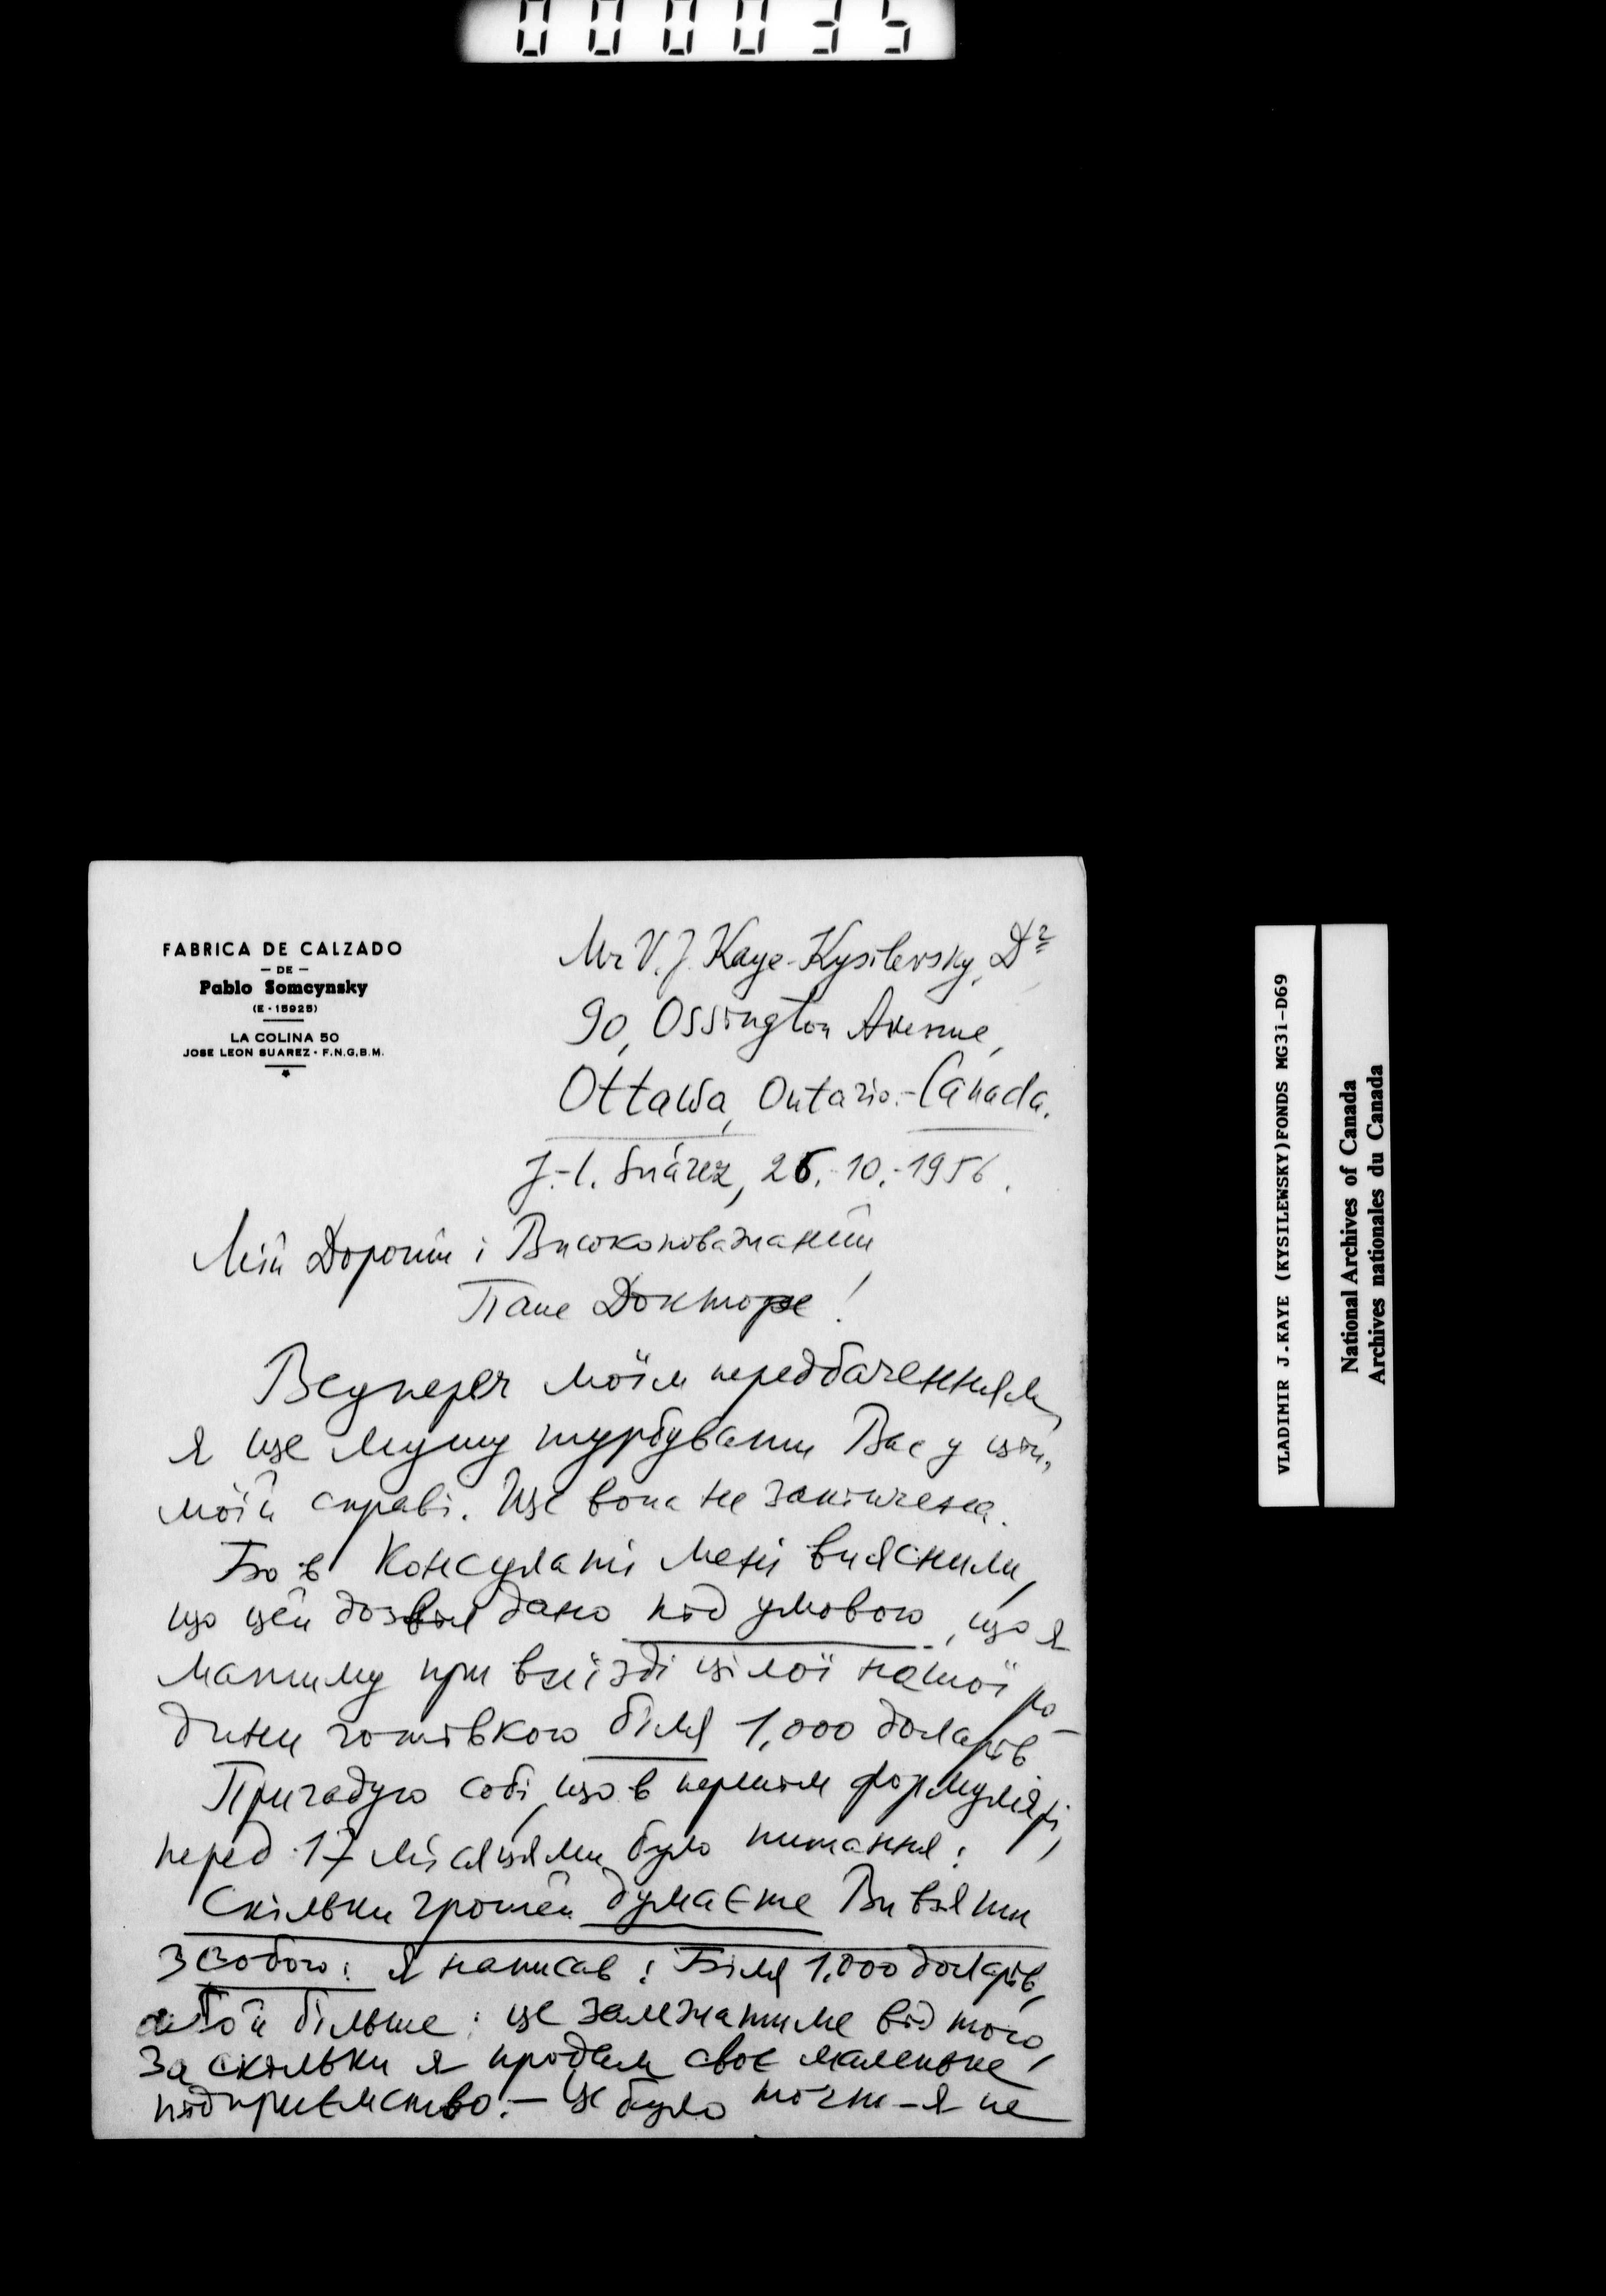 000035
FABRICA DE CALZADO
— DE —
Pablo Somcynsky
(E - 15925)
LA COLINA 50
JOSE LEON SUAREZ - F.N.G.B.M.
Mr V. J. Kaye-Kysilevsky, Dr
90, Ossington Avenue,
Ottawa, Ontario.-Canada.
J.-L. Suárez, 26.-10.-1956.
Мій Дорогий і Високоповажаний
Пане Докторе!
Всупереч моїм передбаченням,
я ще мушу турбувати Вас у цій,
моїй справі. Ще вона не закінчена.
Бо в Консуляті мені вияснили,
що цей дозвіл дано під умовою, що я
матиму при виїзді цілої нашої ро-
дини готівкою біля 1,000 долярів
Пригадую собі, що в першім формулярі,
перед 17 місяцями було питання:
Скільки грошей думаєте Ви взяти
з собою: я написав: Біля 1.000 долярів,
або й більше: це залежатиме від того,
за скільки я продам своє маленьке
підприємство.- Це було точно - я не
VLADIMIR J.KAYE (KYSILEWSKY)FONDS MG31-D69
National Archives of Canada
Archives nationales du Canada